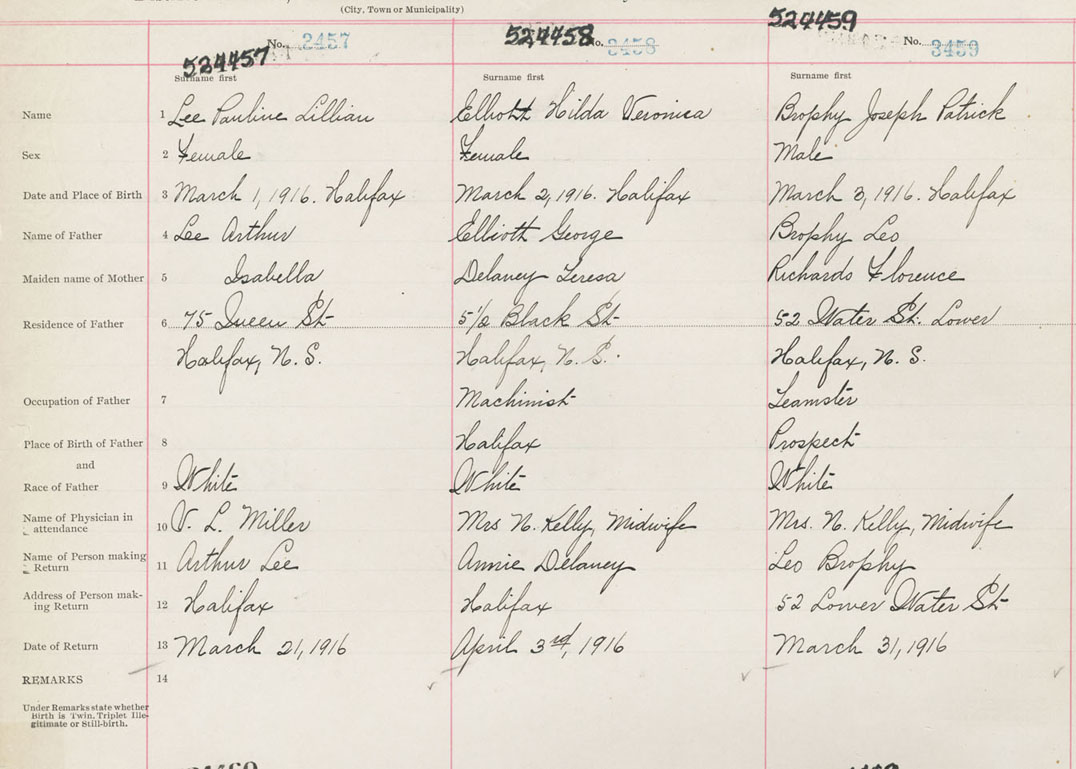 (City, Town or Municipality)
524457 No. 3457 524458 No. 3458 524459 No. 3459
Surname first Surname first Surname first
Name 1 Lee Pauline Lillian Elliott Hilda Veronica Brophy Joseph Patrick
Sex 2 Female Female Male
Date and Place of Birth 3 March 1, 1916. Halifax March 2, 1916. Halifax March 3, 1916. Halifax
Name of Father 4 Lee Arthur Elliott George Brophy Leo
Maiden name of Mother 5 Isabella Delaney Teresa Richards Florence
Residence of Father 6 75 Queen St 51/2 Black St 52 Water St. Lower
Halifax, N. S. Halifax, N. S. Halifax, N. S.
Occupation of Father 7 Machinist Teamster
Place of Birth of Father 8 Halifax Prospect
and
Race of Father 9 White White White
Name of Physician in attendance 10 V. L. Miller Mrs N. Kelly, Midwife Mrs. N. Kelly, Midwife
Name of Person making Return 11 Arthur Lee Annie Delaney Leo Brophy
Address of Person mak-
ing Return 12 Halifax Halifax 52 Lower Water St
Date of Return 13 March 21, 1916 April 3rd, 1916 March 31, 1916
REMARKS 14
Under Remarks state whether
Birth is Twin, Triplet Ille-
gitimate or Still-birth.